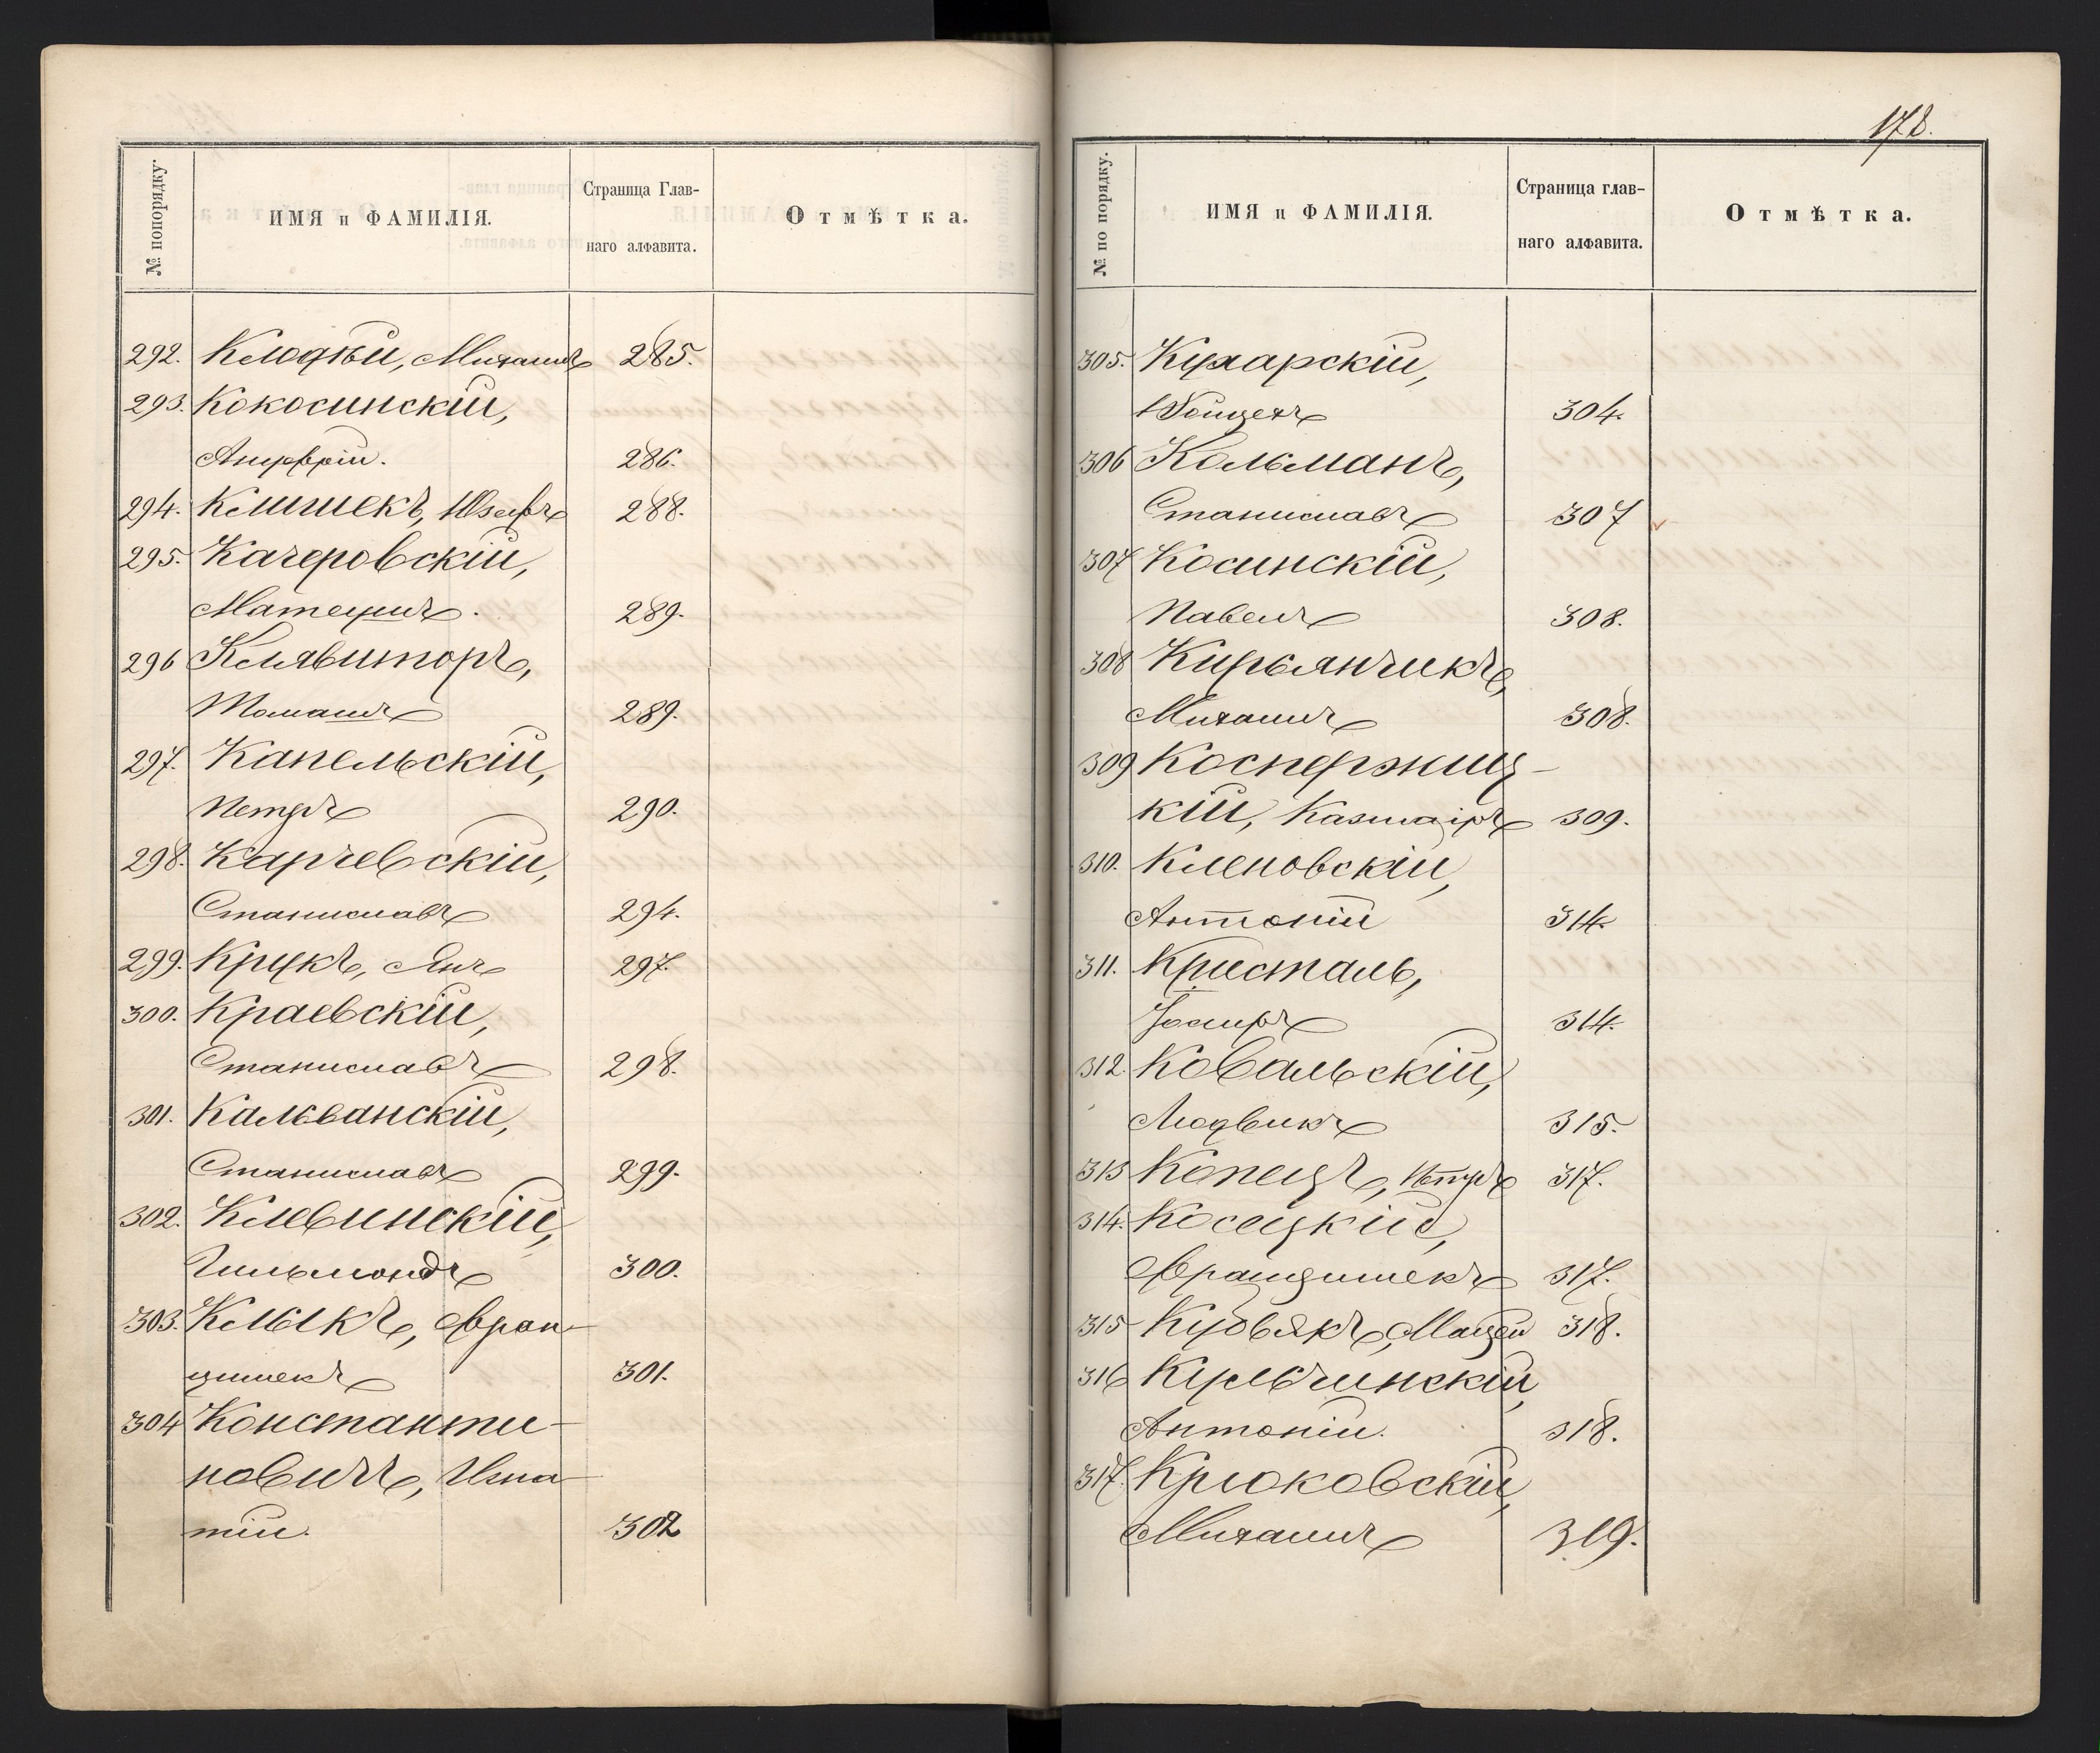 № попорядку.
ИМЯ и ФАМИЛІЯ.
Страница Глав-
наго алфавита.
Отмѣтка.
292. Клюдѣй, Михаилъ 285.
293. Кокосинскій,
Онуфрій. 286.
294. Климекъ, Юзефъ 288.
295. Качеровскій,
Матеушъ. 289.
296 Клявиторъ,
Томашъ 289.
297. Капельскій,
Петръ 290.
298. Карчевскій,
Станиславъ 294.
299. Крукъ, Янъ 297.
300. Краевскій,
Станиславъ 298.
301. Кальванскій,
Станиславъ 299.
302. Клевинскій,
300.
303. Клыкъ, Фран-
цишекъ 301.
304 Константи-
новичъ, Игна-
тій. 302
178.
№ по порядку.
ИМЯ и ФАМИЛІЯ.
Страница глав-
наго алфавита.
Отмѣтка.
305. Кухарскій,
Войцехъ 304.
306 Кольманъ,
Станиславъ 307
307 Косинскій,
Павелъ 308.
308 Кирьянчикъ,
Михаилъ 308.
309 Коспержиц-
кій, Казиміръ 309.
310. Кленовскій,
Антоній 314.
311. Кристаль,
Іосифъ 314.
312. Ковальскій,
Людвикъ 315.
313 Копецъ, Петръ 317.
314. Косецкій,
Францишекъ 317.
315 Кубякъ, Мацей 318.
316 Кульчинскій,
Антоній. 318.
317. Крюковскій,
Михаилъ 319.